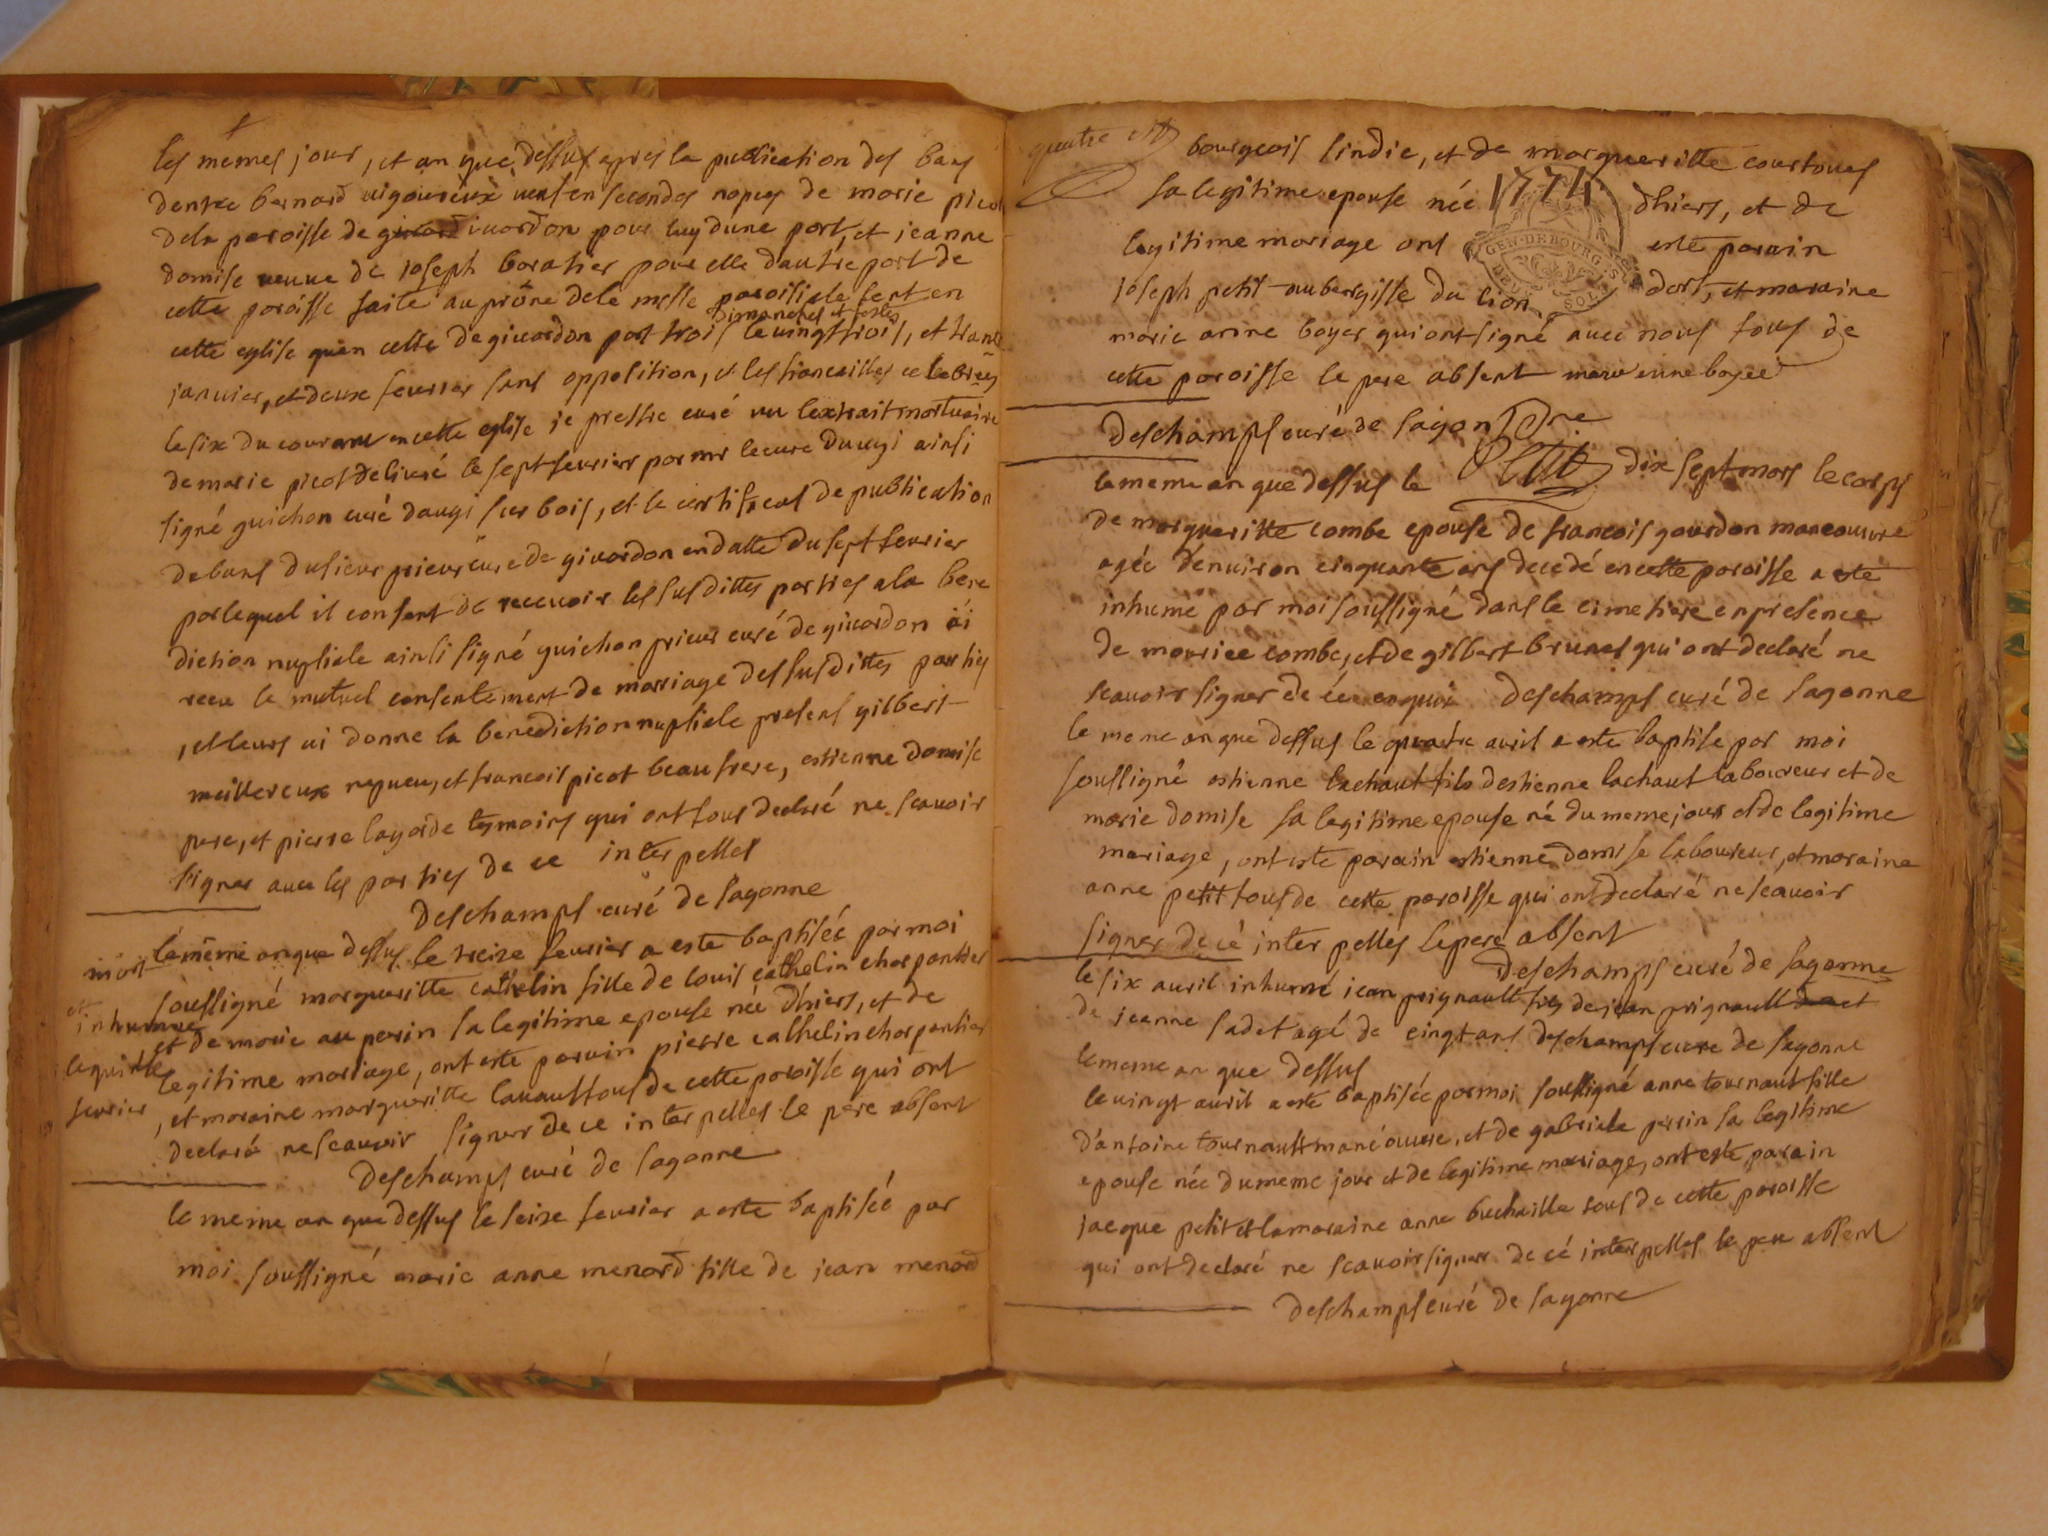 les mêmes jour, et an que dessus apres la publication des bans
dentre bernard vigoureux veuf en secondes nopces de marie picot
dela paroisse de givardon pour luy dune part, et jeanne
domise veuve de joseph boratier pour elle dautre part de
cette paroisse faite au prône dela messe paroissiale tant en
dimanches et festes
cette eglise quen celle de givardon par trois le vingt trois, et trante
janvier, et deux fevrier sans opposition, et les fiancailles celebrées
le six du courant en cette eglise je prestre curé vu lextrait mortuaire
de marie picot delivré le sept fevrier par mr le curé daugi ainsi
signé guichon curé daugi sur bois, et le certificat de publication
de bans du sieur prieur curé de givardon en datte du sept fevrier
par lequel il consent de recevoir les susdittes parties a la bene
diction nuptiale ainsi signé guichon prieur curé de givardon ai
receu le mutuel consentement de marriage des susdittes parties
, et leurs ai donne la benediction nuptiale presens gilbert
meillereux neveu, et francois picot beau frere, estienne domise
pere, et pierre lagarde temoins qui ont tous declaré ne scavoir
signer avec les parties de ce interpelles
deschamps curé de sagonne
le même an que dessus le treize fevrier a este baptisée par moi
soussigné margueritte cathelin fille de louis cathelin charpantier
et de marie auperin sa legitime epouse née dhiers, et de
legitime mariage, ont este parain pierre cathelin charpantier
, et maraine margueritte lavault tous de cette paroisse qui ont
declaré ne scavoir signer de ce interpelles le pere absent
deschamps curé de sagonne
mort
et
inhumée
le quinze
fevrier
le meme an que dessus le seize fevrier a este baptisée par
moi soussigné marie anne menard fille de jean menard
quatre
bourgeois sindic, et de margueritte courtoues
sa legitime epouse née 1774 dhiers, et de
legitime mariage ont este parain
GEN. DE BOURGES
DEUX SOLS
joseph petit aubergiste du lion dort, et maraine
marie anne boyer qui ont signé avec nous tous de
cette paroisse le pere absent marie anne boyer
deschamps curé de sagonne
Petit
le meme an que dessus le dix sept mars le corps
de margueritte combe epouse de francois gourdon maneouvre
agée denviron cinquante ans decedé en cette paroisse a este
inhumé par moi soussigné dans le cimetiere en presence
de mourice combe, et de gilbert brunet qui ont declaré ne
scavoir signer de ce enquis deschamps curé de sagonne
le meme an que dessus le quatre avril a este baptise par moi
soussigné estienne lachaut fils destienne lachaut laboureur et de
marie domise sa legitime epouse né du meme jour et de legitime
mariage, ont este parain estienne domise laboureur, et maraine
anne petit tous de cette paroisse qui ont declaré ne scavoir
signer de cé interpelles le pere absent
deschamps curé de sagonne
le six avril inhumé jean prignault fils de jean prignault et
de jeanne sadet agé de cinqt ans deschamps curé de sagonne
le meme an que dessus
le vingt avril a este baptisée par moi soussigné anne tournaut fille
d'antoine tournault maneouvre, et de gabriele perrin sa legitime
epouse née du meme jour et de legitime mariage, ont este parain
jacque petit et la maraine anne buchaille tous de cette paroisse
qui ont declaré ne scavoir signer de cé interpelles le pere absent
deschamps curé de sagonne